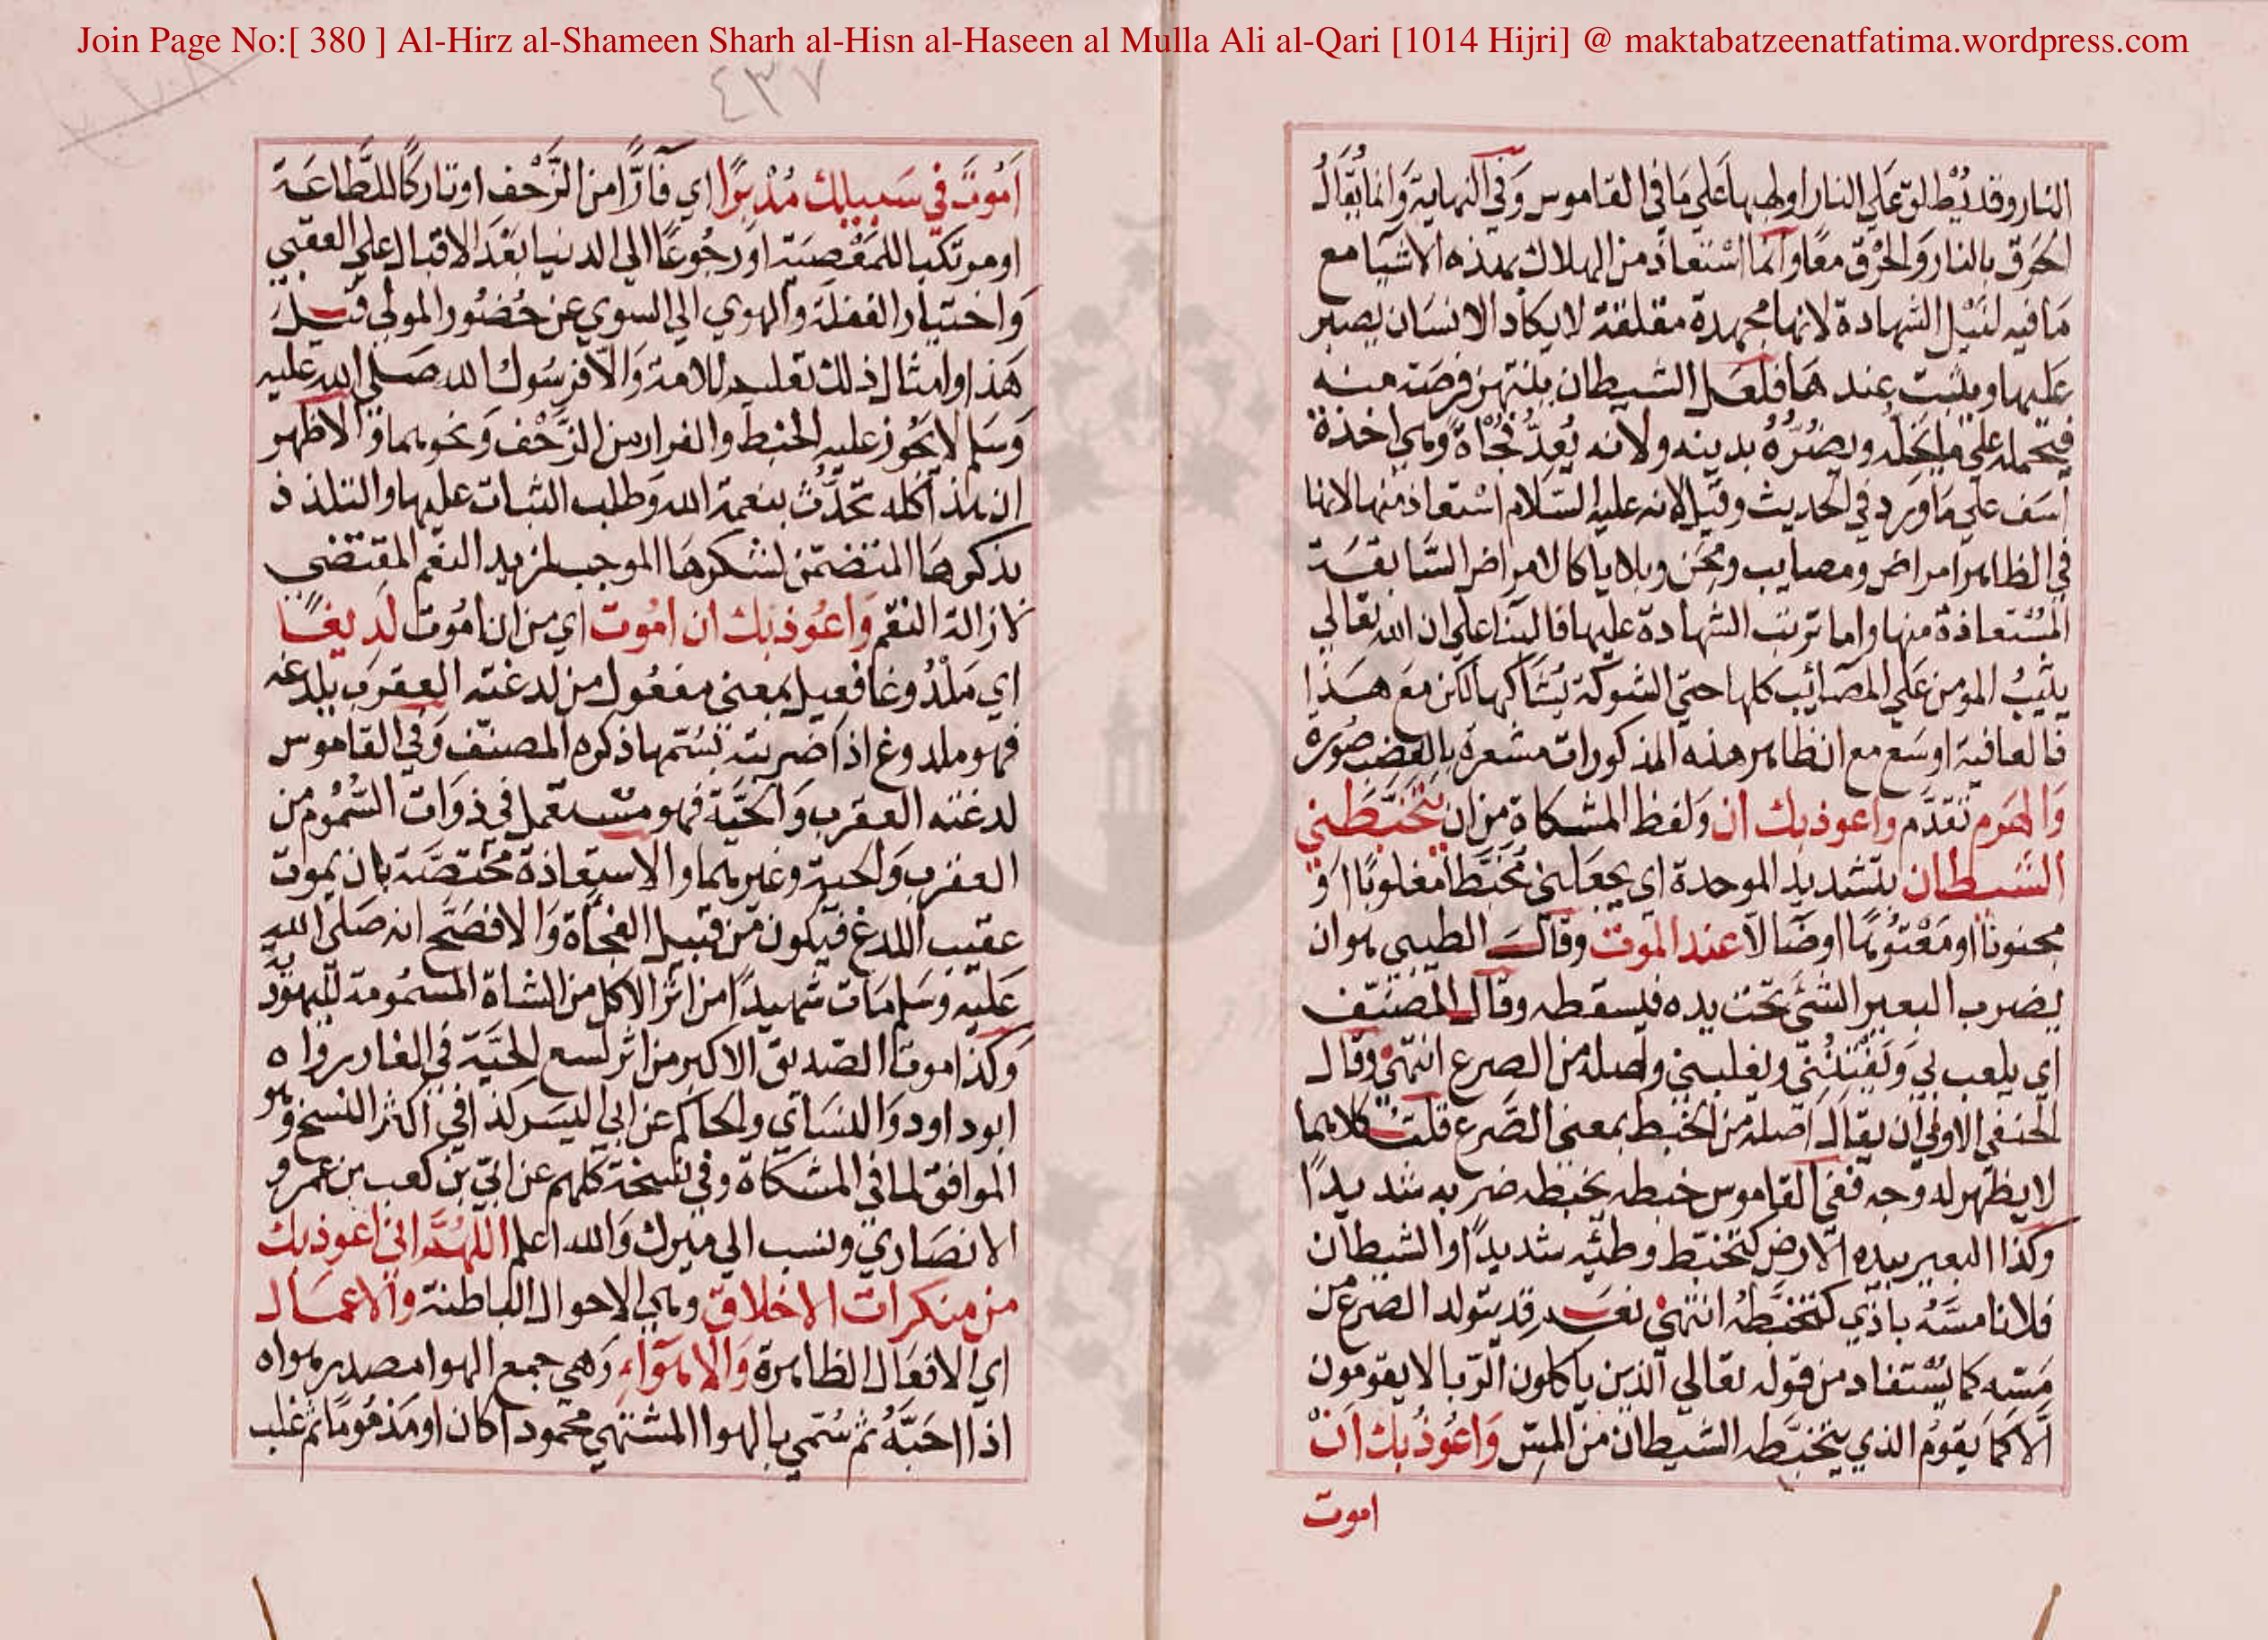 Join Page No:[ 380 ] Al-Hirz al-Shameen Sharh al-Hisn al-Haseen al Mulla Ali al-Qari [1014 Hijri] @ maktabatzeenatfatima.wordpress.com
٤٣٧
النار وقد يُطلق عَلي النار اولهبها عَلي مَا في القاموس وَفي النهاية وَانما يُقالُ
الحَرق بالنار وَالحَرْق معًا وَانما اسْتعاذ من الهلاك بهذه الاشيا مع
مَا فيه لنَيْل الشهادة لانها مجهدة مقلقة لا يكاد الانسَان يصبر
عَليها ويثبت عند هَا فلعَل الشيطان ينتهز فرصَة منه
فيَحمله علي مايخله ويضُرُّهُ بدينه ولانه يُعدُّ فَجْأة وَهي اخذة
اسَف علي مَا وَرد في الحديث وقيل لانه عليه السَّلام اسْتعاذ منها لانها
في الظاهر امراض ومصايب ومِحَن وبلايا كالامراض السَّابقَة
المُسْتعاذة منها واما ترتب الشهادة عليها فالبنا علي ان الله تعالي
يثيبُ المومن عَلي المصَائب كلها حتي الشوكة يُشاكها لكن مَع هَذا
فالعافية اوسَع مع ان ظاهر هذه المذكورات مشعرة بالغضب صُورة
وَالهَرم تقدَّم واعوذ بك ان وَلفظ المشكاة مِن ان يَتخَبَّطَني
الشَّيطان بتشديد الموحدة اي يجعَلني مُخَبَّطا مغلوبًا اوْ
مجنونًا او مَعْتُوهًا اوضَالا عند الموت وقال الطيبي هو ان
يضرب البعير الشئ تحت يده فيسقطه وقال المصَنّف
اي يلعب بي وَيَفتِنُني ويغلبني واصله من الصرع انتهي وقال
الحنفي الاولي ان يقال اصله من الخبط بمعني الصَّرع قلتُ كلاهما
لا يظهر له وجه ففي القاموس خبطه يخبطه ضربه شديدًا
وكذا البعير بيده الارض كتخبّط وطئه شديدًا والشيطان
فلانا مسَّهُ باذي كتخبّطهُ انتهي نعَم قد يتولد الصرع من
مَسّه كما يُسْتفاد من قوله تعالي الذين ياكلون الرّبا لا يقومون
اَلا كمَا يَقومُ الذي يتخبَّطه الشيطان من المسّ وَاعُوذُ بك انْ
اموت
اَمُوتَ في سَبيلك مُدْبرًا اي فَارًّا من الزَّحْف او تاركًا للطَّاعَة
او مرتكبا للمَعْصيَة اوْ رجُوعًا الي الدنيا بَعْدَ الاقبال علي العقبي
وَاختيار الغفلة والهوي الي السوي عن حُضُور المولي قيلَ
هَذا وامثال ذلك تعليم للامة وَالاّ فرسُول الله صَلي الله عليه
وَسَلم لا يَجُوز عليه الخبط والفرار من الزَّحْف وَنحوهما وَالاظهر
ان هذا كله تَحدُّث بنعمة الله وَطلب الثبات عليها والتلذذ
بذكرهَا المتضمّن لشكرهَا الموجب لمزيد النعم المقتضي
لازالة النقم وَاعُوذ بك ان امُوت اي من ان امُوت لَديغًا
اي مَلْدُوغا فعيل بمعني مفعُول من لدغته العقرب يلدغه
فهو ملدوغ اذا ضربته بسُمّها ذكره المصنّف وَفي القاموس
لدغته العقرب وَالحيَّة فهو مسْتعمل في ذوَات السُّمُوم من
العقرب وَالحية وغيرهما والاستعاذة مختصَّة بان يموت
عقيب اللدغ فيكون من قبيل الفجأة وَالا فصَحّ انه صَلي الله
عَليه وسَلم مَات شهيدًا من اثر الاكل من الشاة المسمُومة لليهُودية
وَكذا موت الصّديق الاكبر من اثر لسع الحيَّة في الغار رواه
ابوداود وَالنسَاي والحاكم عن ابي اليسَر كذا في اكثر النسخ وهو
الموافق لما في المشكاة وفي نسخة كلهم عن ابيّ بن كعب بن عمرو
الانصَاري ونسب الي ميرك وَالله اعلم اللهُمَّ اني اعوذ بك
من منكرات الاخلاق وهي الاحوال الباطنة والاعمَال
اي الافعَال الظاهرة وَالاهوَاء وَهي جمع الهوا مصدر هواه
اذا احَبَّهُ ثم سُمّي بالهوا المشتهي محمودا كان او مَذمُومًا ثم غلب